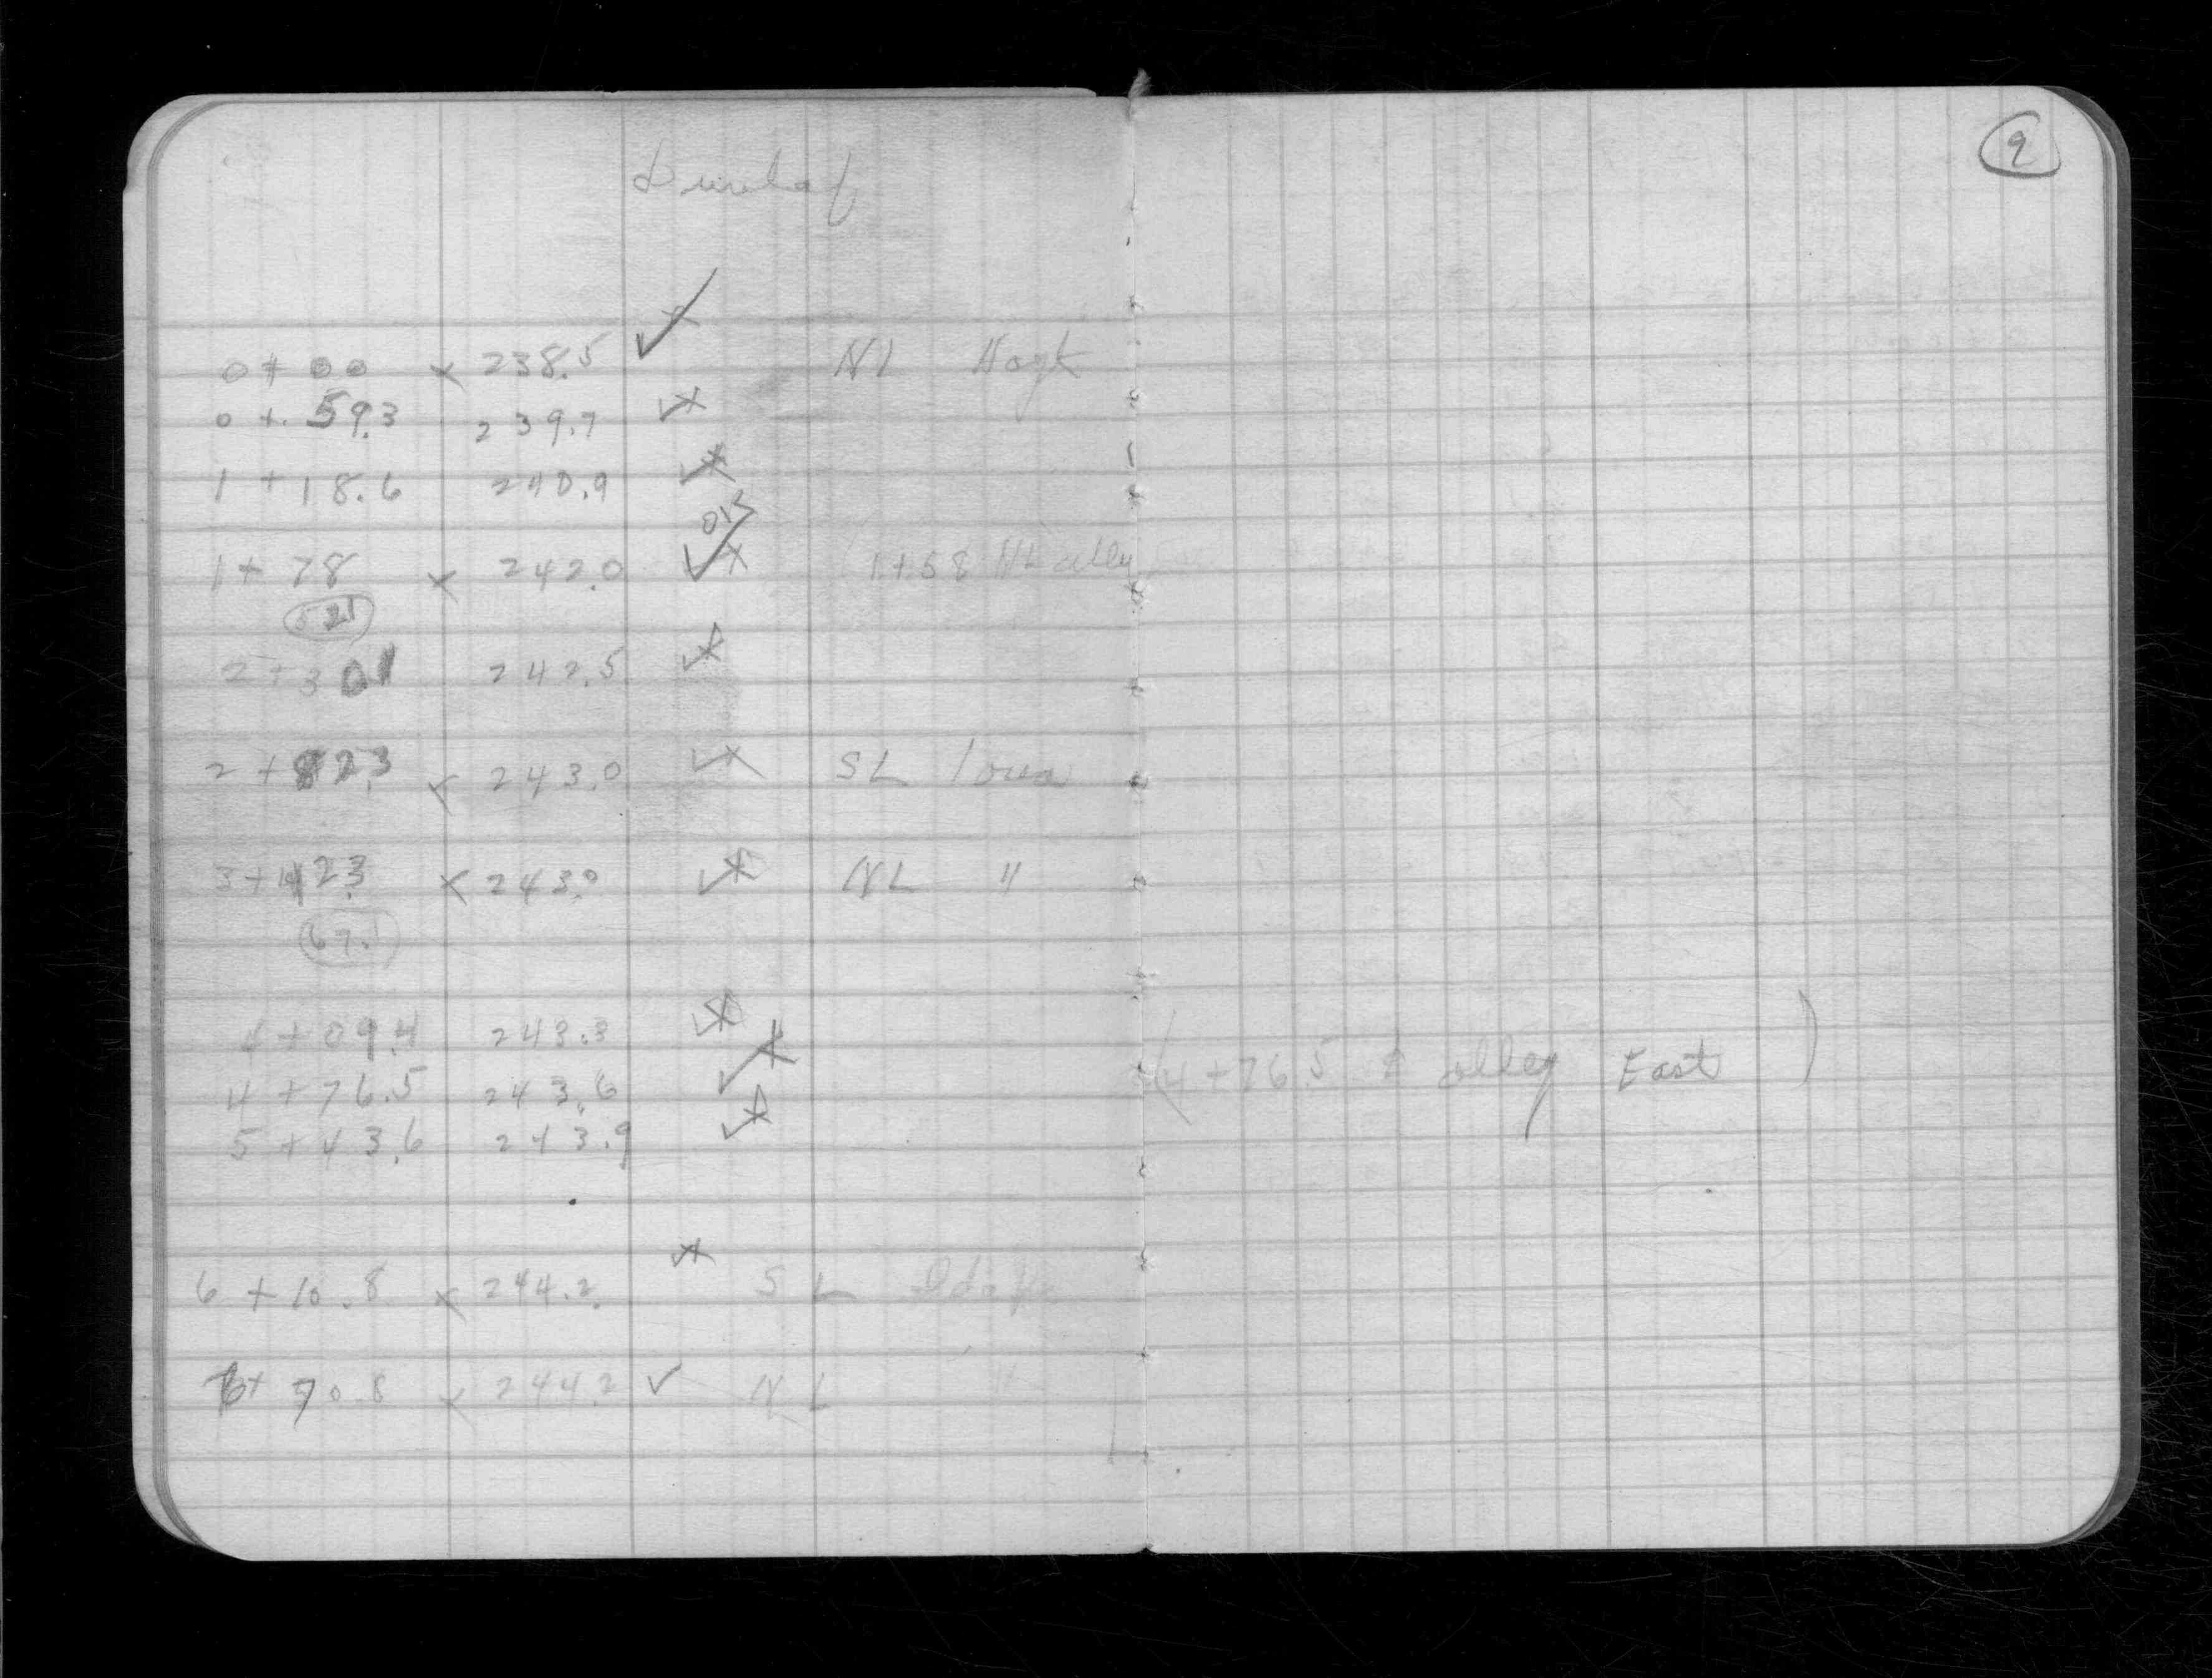 9
Dunlap
0+00 x 238.5 ✓
NL Hoyt
0+59.3 239.7 ✓x
1+18.6 240.9 ✓x
1+78 x 242.0 ✓x (1+58 NL alley)
52.1
2+30.1 242.5 ✓x
2+82.3 x 243.0 ✓x SL Iowa
3+42.3 x 243.0 ✓x NL "
67.1
4+09.4 243.3 ✓x
4+76.5 243.6 ✓x (4+76.5 alley East)
5+43.6 243.9 ✓x
6+10.8 x 244.2 ✓x SL Idaho
6+70.8 x 244.2 ✓ NL "